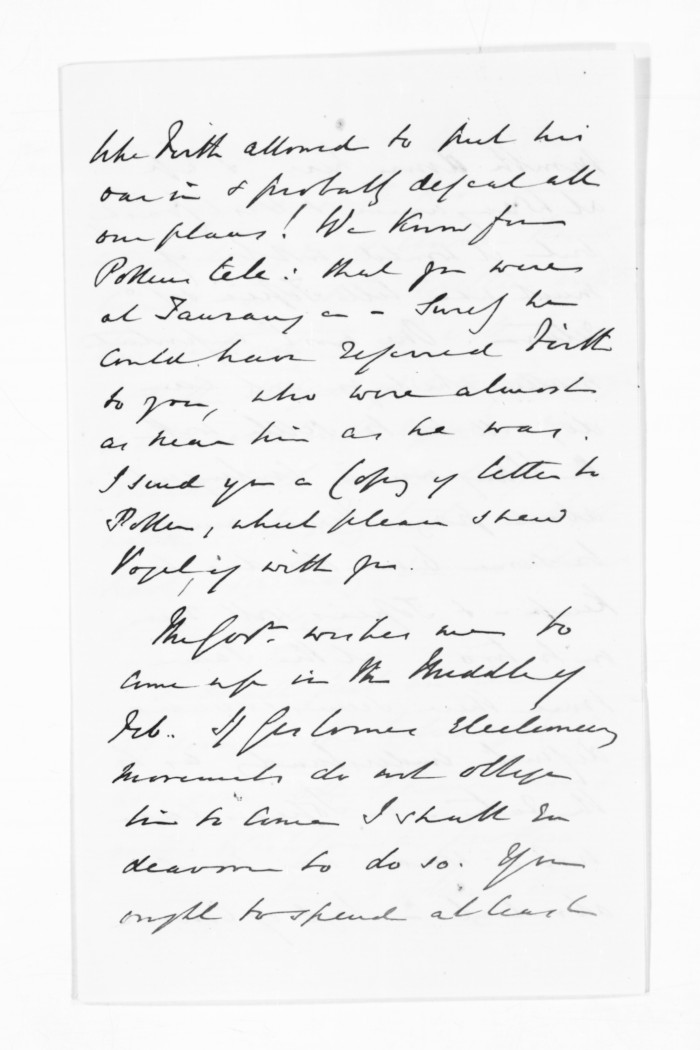 like Firth allowed to put his
oar in & probably defeat all
our plans! We know from
Pollens tele: that you were
at Tauranga - Surely he
could have referred Firth
to you, who were almost
as near him as he was.
I send you a Copy of letter to
Pollen, which please shew
Vogel, if with you.
The Govr. wishes me to
come up in the Middle of
Feb. If Gisborne's Electioneering
movements do not oblige
him to come I shall En
deavour to do so. You
ought to spend at least